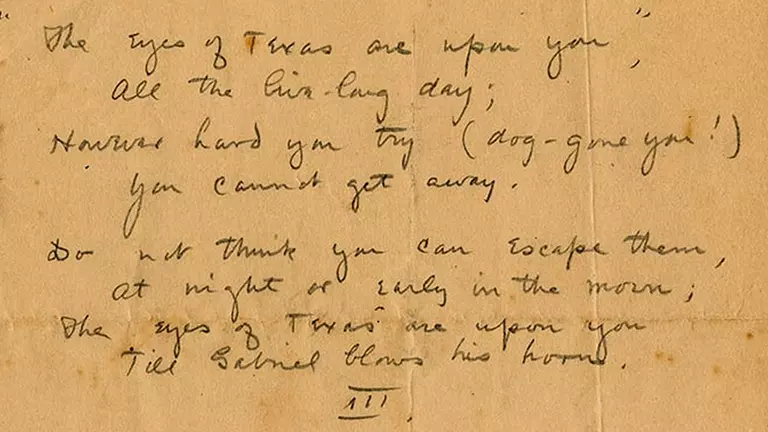 "The Eyes of Texas are upon you",
All the live-long day;
However hard you try (dog-gone you!)
You cannot get away.
Do not think you can escape them,
At night or early in the morn;
The eyes of Texas are upon you
Till Gabriel blows his horn.
III.